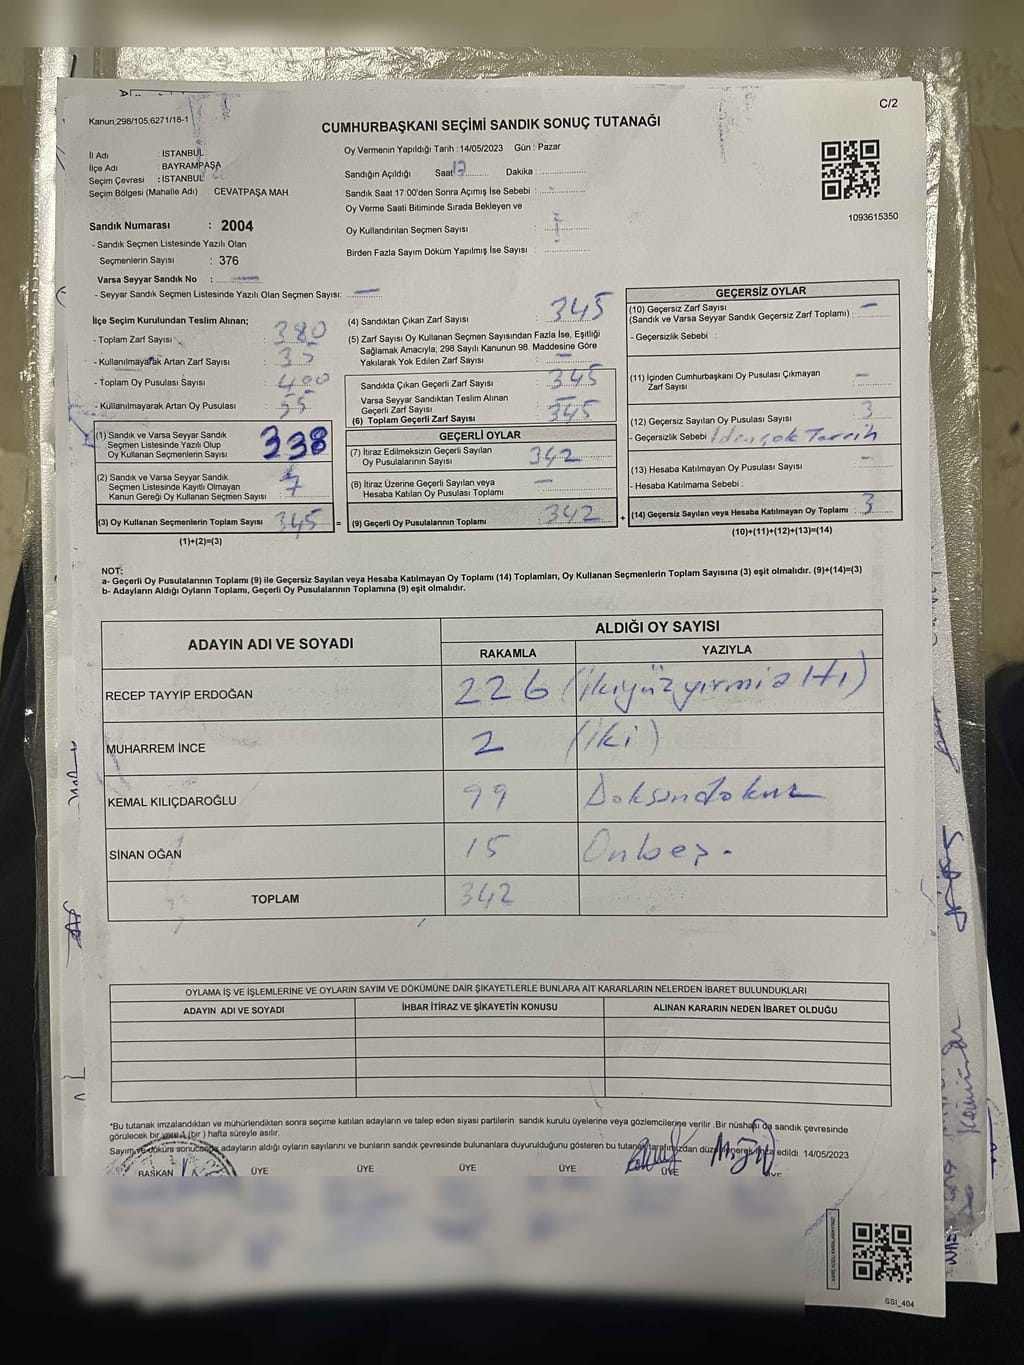 C/2
Kanun,298/105,6271/18-1
CUMHURBAŞKANI SEÇİMİ SANDIK SONUÇ TUTANAĞI
İl Adı : İSTANBUL
İlçe Adı : BAYRAMPAŞA
Seçim Çevresi : İSTANBUL
Seçim Bölgesi (Mahalle Adı) : CEVATPAŞA MAH.
Oy Vermenin Yapıldığı Tarih : 14/05/2023 Gün : Pazar
Sandığın Açıldığı Saat 17 Dakika :
Sandık Saat 17:00'den Sonra Açımış İse Sebebi :
Oy Verme Saati Bitiminde Sırada Bekleyen ve
Oy Kullandırılan Seçmen Sayısı :
Birden Fazla Sayım Döküm Yapılmış İse Sayısı :
1093615350
Sandık Numarası : 2004
- Sandık Seçmen Listesinde Yazılı Olan
Seçmenlerin Sayısı : 376
Varsa Seyyar Sandık No : —
- Seyyar Sandık Seçmen Listesinde Yazılı Olan Seçmen Sayısı: —
İlçe Seçim Kurulundan Teslim Alınan;
- Toplam Zarf Sayısı : 380
- Kullanılmayarak Artan Zarf Sayısı : 35
- Toplam Oy Pusulası Sayısı : 400
- Kullanılmayarak Artan Oy Pusulası : 55
(1) Sandık ve Varsa Seyyar Sandık
Seçmen Listesinde Yazılı Olup
Oy Kullanan Seçmenlerin Sayısı 338
(2) Sandık ve Varsa Seyyar Sandık
Seçmen Listesinde Kayıtlı Olmayan
Kanun Gereği Oy Kullanan Seçmen Sayısı : 7
(3) Oy Kullanan Seçmenlerin Toplam Sayısı : 345 =
(1)+(2)=(3)
(4) Sandıktan Çıkan Zarf Sayısı : 345
(5) Zarf Sayısı Oy Kullanan Seçmen Sayısından Fazla İse, Eşitliği
Sağlamak Amacıyla, 298 Sayılı Kanunun 98. Maddesine Göre
Yakılarak Yok Edilen Zarf Sayısı : —
Sandıkta Çıkan Geçerli Zarf Sayısı : 345
Varsa Seyyar Sandıktan Teslim Alınan
Geçerli Zarf Sayısı : —
(6) Toplam Geçerli Zarf Sayısı : 345
GEÇERLİ OYLAR
(7) İtiraz Edilmeksizin Geçerli Sayılan
Oy Pusulalarının Sayısı : 342
(8) İtiraz Üzerine Geçerli Sayılan veya
Hesaba Katılan Oy Pusulası Toplamı : —
(9) Geçerli Oy Pusulalarının Toplamı : 342 +
GEÇERSİZ OYLAR
(10) Geçersiz Zarf Sayısı
(Sandık ve Varsa Seyyar Sandık Geçersiz Zarf Toplamı) : —
- Geçersizlik Sebebi :
(11) İçinden Cumhurbaşkanı Oy Pusulası Çıkmayan
Zarf Sayısı : —
(12) Geçersiz Sayılan Oy Pusulası Sayısı : 3
- Geçersizlik Sebebi 1 den çok Tercih
(13) Hesaba Katılmayan Oy Pusulası Sayısı : —
- Hesaba Katılmama Sebebi :
(14) Geçersiz Sayılan veya Hesaba Katılmayan Oy Toplamı : 3
(10)+(11)+(12)+(13)=(14)
NOT:
a- Geçerli Oy Pusulalarının Toplamı (9) ile Geçersiz Sayılan veya Hesaba Katılmayan Oy Toplamı (14) Toplamları, Oy Kullanan Seçmenlerin Toplam Sayısına (3) eşit olmalıdır. (9)+(14)=(3)
b- Adayların Aldığı Oyların Toplamı, Geçerli Oy Pusulalarının Toplamına (9) eşit olmalıdır.
ADAYIN ADI VE SOYADI ALDIĞI OY SAYISI
RAKAMLA YAZIYLA
RECEP TAYYİP ERDOĞAN 226 (ikiyüzyirmialtı)
MUHARREM İNCE 2 (iki)
KEMAL KILIÇDAROĞLU 99 Doksandokuz
SİNAN OĞAN 15 Onbeş.
TOPLAM 342
OYLAMA İŞ VE İŞLEMLERİNE VE OYLARIN SAYIM VE DÖKÜMÜNE DAİR ŞİKAYETLERLE BUNLARA AİT KARARLARIN NELERDEN İBARET BULUNDUKLARI
ADAYIN ADI VE SOYADI İHBAR İTİRAZ VE ŞİKAYETİN KONUSU ALINAN KARARIN NEDEN İBARET OLDUĞU
*Bu tutanak imzalandıktan ve mühürlendikten sonra seçime katılan adayların ve talep eden siyasi partilerin sandık kurulu üyelerine veya gözlemcilerine verilir. Bir nüshası da sandık çevresinde
görülecek bir yere 1 (bir ) hafta süreyle asılır.
Sayım ve döküm sonucunda adayların aldığı oyların sayılarını ve bunların sandık çevresinde bulunanlara duyurulduğunu gösteren bu tutanak tarafımızdan düzenlenerek imza edildi. 14/05/2023
BAŞKAN ÜYE ÜYE ÜYE ÜYE ÜYE ÜYE
SSI_404